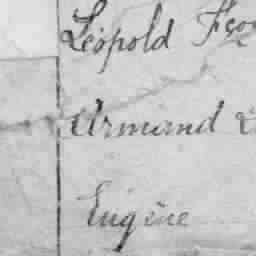 Léopold
Armand
Eugène